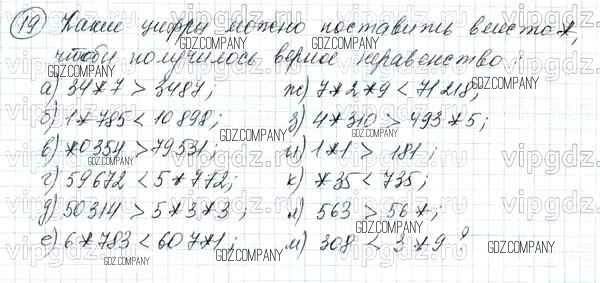 19) Какие цифры можно поставить вместо *,
чтобы получилось верное неравенство:
а) 34*7 > 3487; ж) 7*2*9 < 71218;
б) 1*785 < 10898; з) 4*310 > 493*5;
в) *0354 > 79531; и) 1*1 > 181;
г) 59672 < 5*772; к) *35 < 735;
д) 50314 > 5*3*3; л) 563 > 56*;
е) 6*783 < 607*1; м) 308 < 3*9?
GDZ.COMPANY
vipgdz.ru